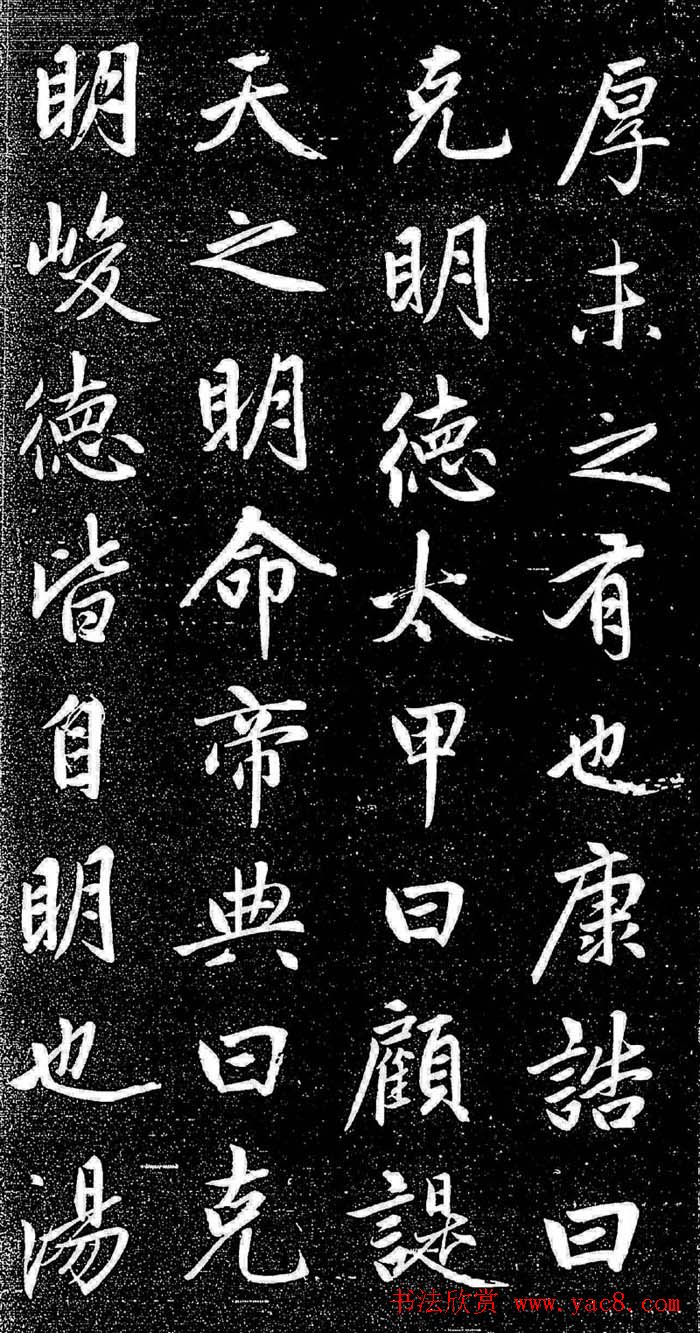 厚未之有也康誥曰
克明德太甲曰顧諟
天之明命帝典曰克
明峻德皆自明也湯
书法欣赏 www.yac8.com